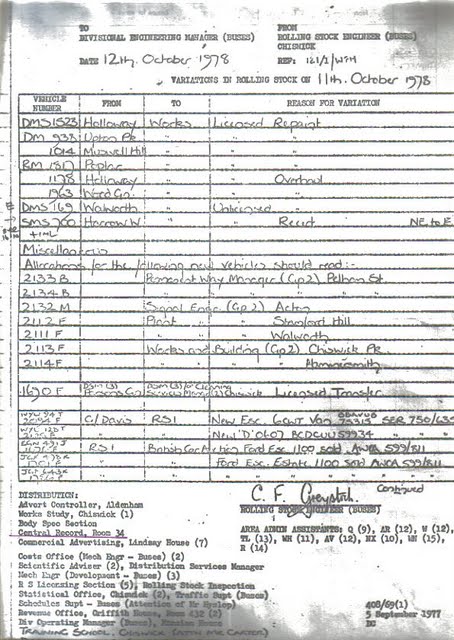 TO
DIVISIONAL ENGINEERING MANAGER (BUSES)
FROM
ROLLING STOCK ENGINEER (BUSES)
CHISWICK
DATE 12th. October 1978
REF: 121/2/WFM
VARIATIONS IN ROLLING STOCK ON 11th. October 1978
VEHICLE NUMBER FROM TO REASON FOR VARIATION
DMS 1523 Holloway Works Licensed Repaint
DM 933 Upton Pk " "
1014 Muswell Hill " "
RM 1317 Poplar " "
1178 Holloway " Overhaul
1963 Wood Gn " "
DMS 169 Walworth " Unlicensed "
SMS 760 Harrow W " " Recert NE to E
Miscellaneous
Allocations for the following new vehicles should read:-
2133 B Permanent Way Manager (Gp2) Pelham St.
2134 B " " " "
2132 M Signal Engr. (Gp2) Acton
2112 F Plant " Stamford Hill
2111 F " " Walworth
2113 F Works and Building (Gp2) Chiswick Pk.
2114 F " " " Hammersmith
1690 F Chiswick Licensed Transfer
C/Davis RS1 New Esc. 6cwt Van
RS1 British Car Auction Ford Esc. 1100 sold
" " Ford Esc. Estate 1100 sold
Continued
DISTRIBUTION:
Advert Controller, Aldenham
Works Study, Chiswick (1)
Body Spec Section
Central Record, Room 34
Commercial Advertising, Lindsay House (7)
Costs Office (Mech Engr - Buses) (2)
Scientific Adviser (2), Distribution Services Manager
Mech Engr (Development - Buses) (3)
R S Licensing Section (5), Rolling Stock Inspection
Statistical Office, Chiswick (2), Traffic Supt (Buses)
Schedules Supt - Buses (Attention of Mr Hyslop)
Revenue Office, Griffith House, Room 432 (2)
Div Operating Manager (Buses),
TRAINING SCHOOL. CHISWICK (ATTN MR CARTER)
C. F. Greystock
ROLLING STOCK ENGINEER (BUSES)
AREA ADMIN ASSISTANTS: Q (9), AR (12), W (12),
TL (13), WH (11), AV (12), HX (10), WN (15),
R (14)
408/69(1)
5 September 1977